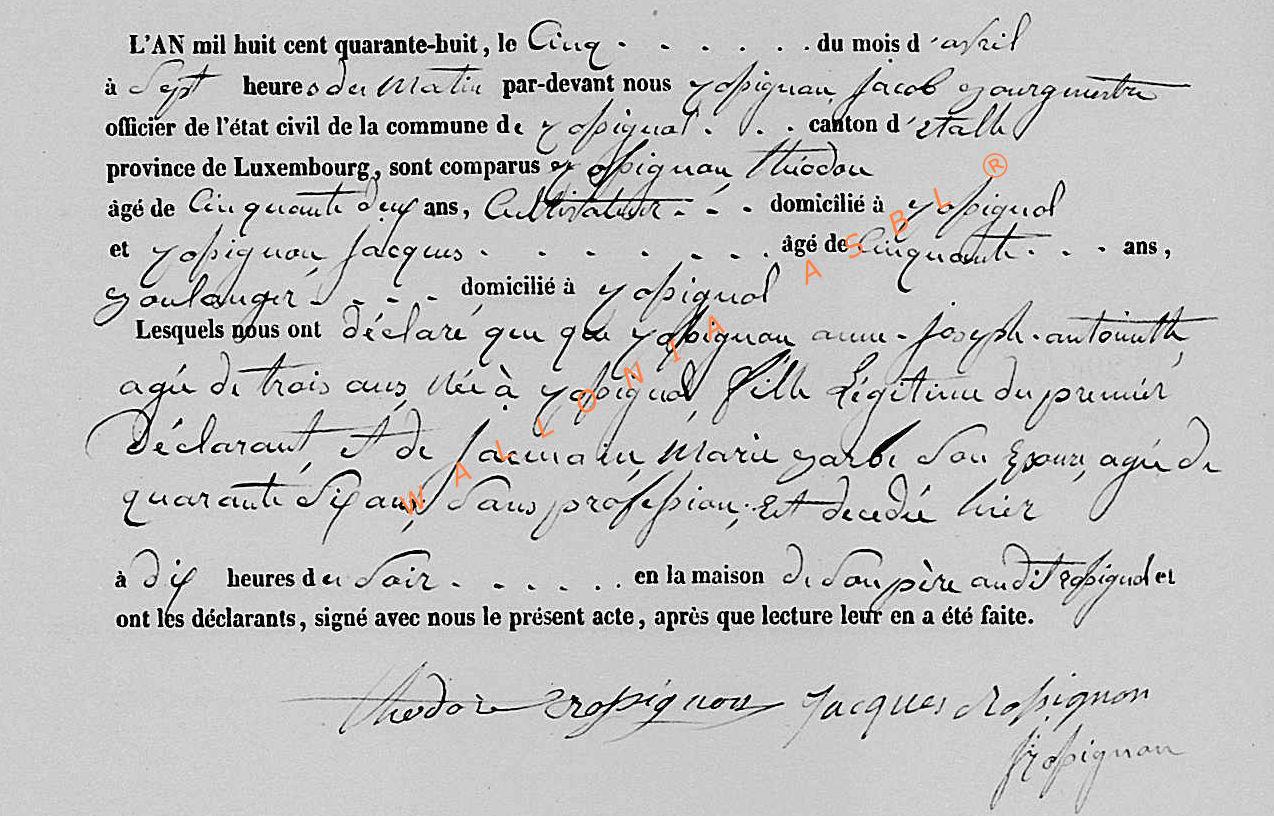 L'AN mil huit cent quarante-huit, le Cinq . . . . . . du mois d'avril
à Sept heures du Matin par-devant nous Rossignon Jacob Bourgmestre
officier de l'état civil de la commune de Rossignol . . . canton d'Etalle
province de Luxembourg, sont comparus Rossignon Théodore
âgé de Cinquante deux ans, Cultivateur . . . domicilié à Rossignol
et Rossignon Jacques . . . . . . . âgé de Cinquante . . . ans,
Boulanger . . . . domicilié à Rossignol
Lesquels nous ont déclaré que Rossignon anne-Joseph-antoinette
agée de trois ans, Née à Rossignol, fille Légitime du premier
Déclarant, et de Marie barbe Son Epouse, agée de
quarante Six ans, Sans profession, Est decedée hier
à dix heures du Soir . . . . . . en la maison de Son père audit Rossignol et
ont les déclarants, signé avec nous le présent acte, après que lecture leur en a été faite.
théodore rossignon Jacques Rossignon
Rossignon
WALLONIA ASBL ®